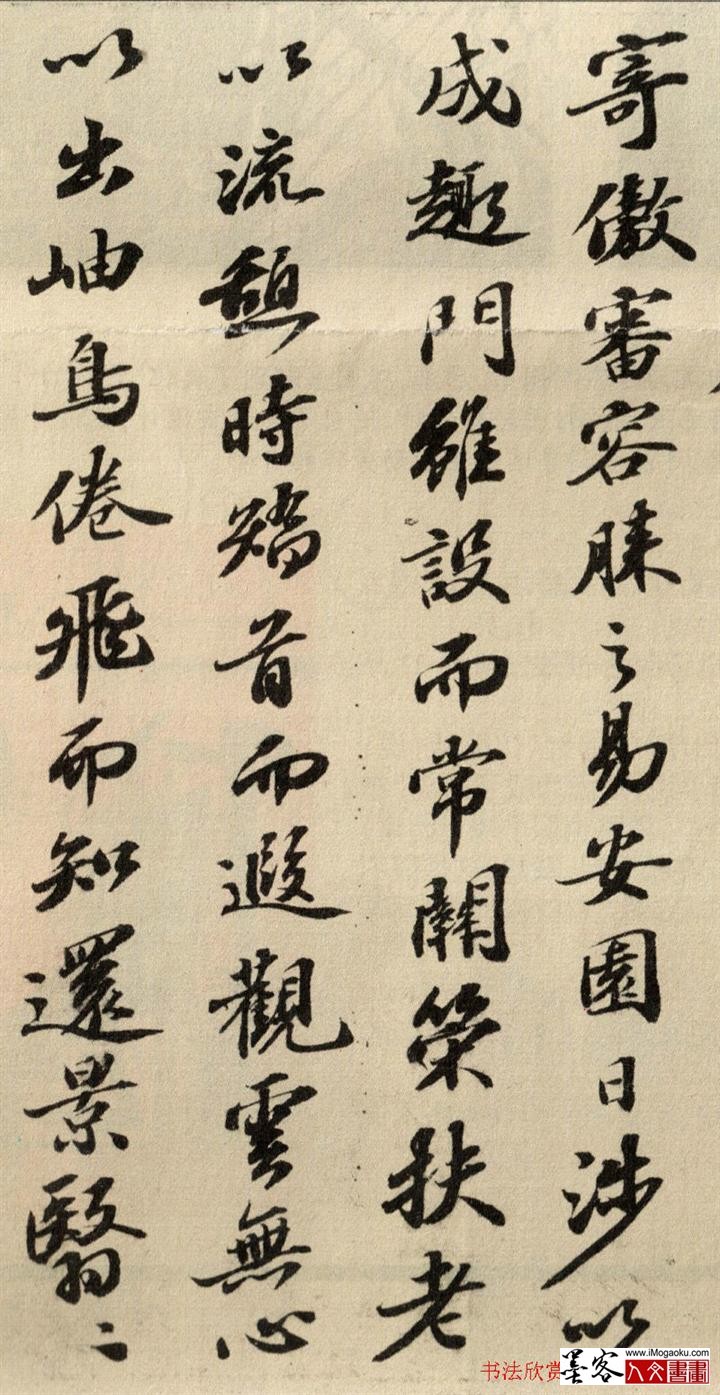 寄傲審容膝之易安園日涉以
成趣門雖設而常關策扶老
以流憩時矯首而遐觀雲無心
以出岫鳥倦飛而知還景翳〻
书法欣赏
墨客
www.iMogaoku.com
人文書畫